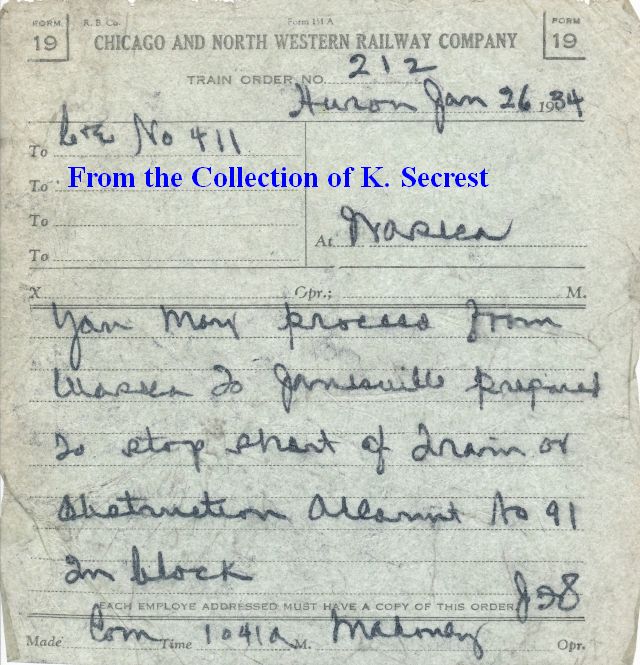 FORM 19
R. B. Co.
Form 151 A
FORM 19
CHICAGO AND NORTH WESTERN RAILWAY COMPANY
TRAIN ORDER NO. 212
Huron Jan 26 1934
To C&E No 411
To
From the Collection of K. Secrest
To
To
At Waseca
X Opr.; M.
You may proceed from
Waseca to Janesville prepared
to stop short of train or
obstruction account No 91
in block
EACH EMPLOYE ADDRESSED MUST HAVE A COPY OF THIS ORDER
Made Com Time 1041a M. Mahoney Opr.